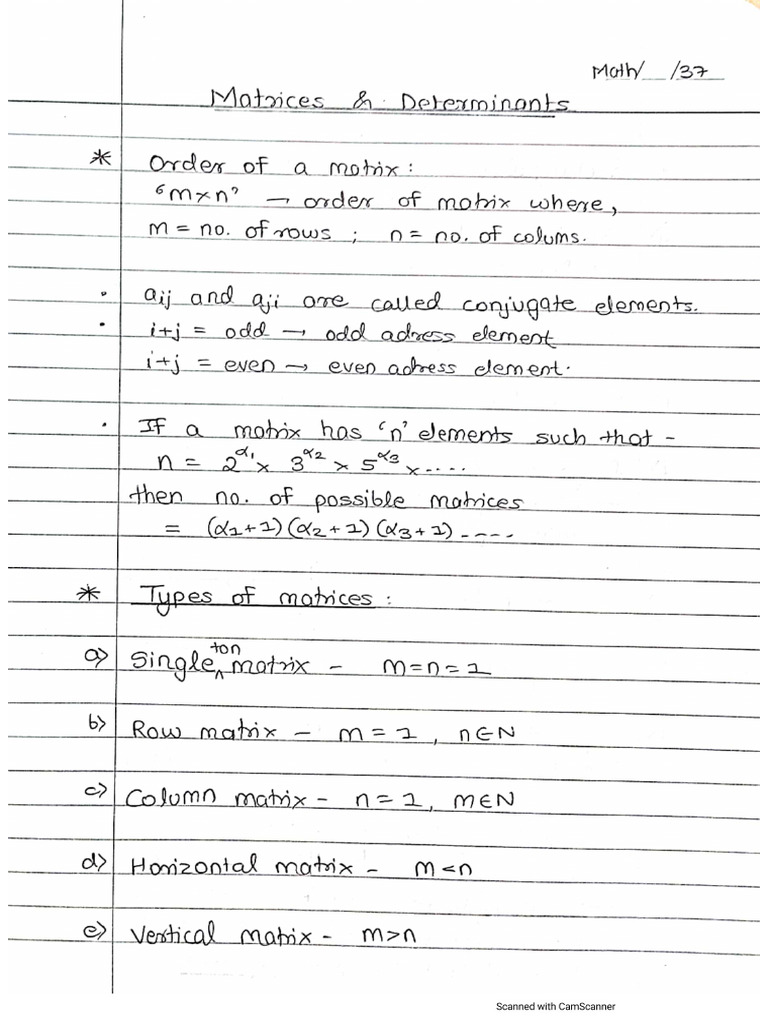 Math/__/37
Matrices & Determinants
* Order of a matrix:
'm×n' → order of matrix where,
m = no. of rows ; n = no. of colums.
· aij and aji are called conjugate elements.
· i+j = odd → odd adress element
i+j = even → even adress element.
· If a matrix has 'n' elements such that -
n = 2^α1 × 3^α2 × 5^α3 × .....
then no. of possible matrices
= (α1+1)(α2+1)(α3+1)-----
* Types of matrices:
a) Singleton matrix - m=n=1
b) Row matrix - m=1, n∈N
c) Column matrix - n=1, m∈N
d) Horizontal matrix - m<n
e) Vertical matrix - m>n
Scanned with CamScanner